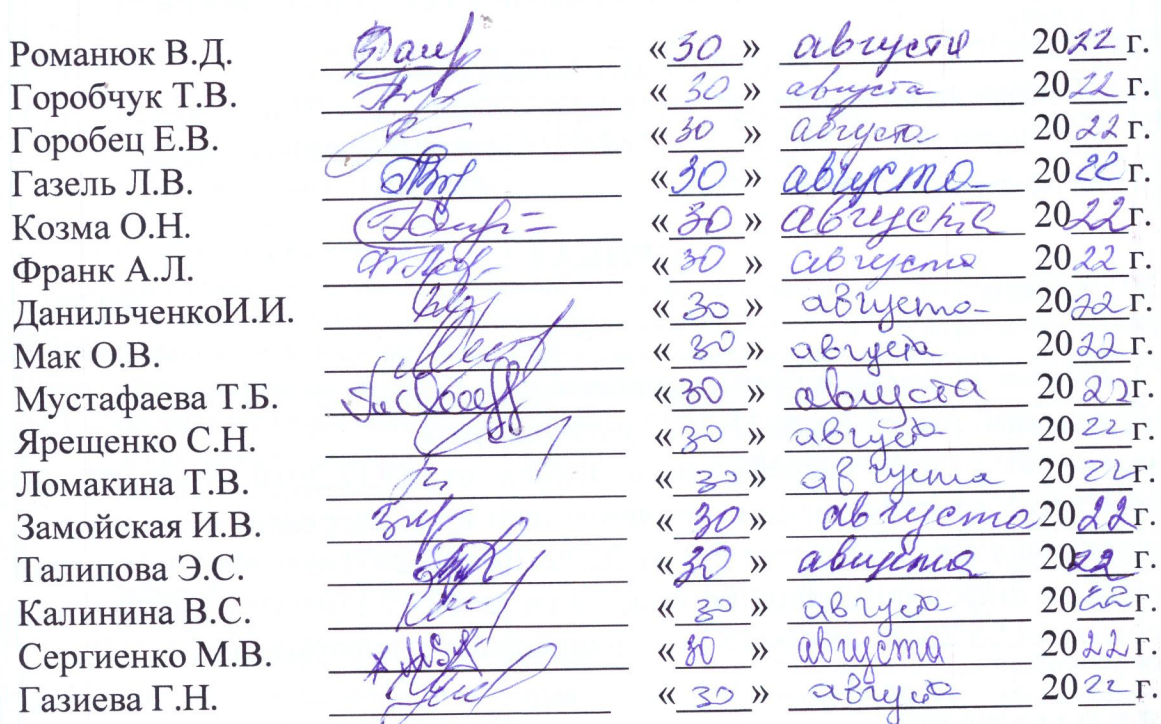 Романюк В.Д. «30» августа 2022 г.
Горобчук Т.В. «30» августа 2022 г.
Горобец Е.В. «30» августа 2022 г.
Газель Л.В. «30» августа 2022 г.
Козма О.Н. «30» августа 2022 г.
Франк А.Л. «30» августа 2022 г.
ДанильченкоИ.И. «30» августа 2022 г.
Мак О.В. «30» августа 2022 г.
Мустафаева Т.Б. «30» августа 2022 г.
Ярещенко С.Н. «30» августа 2022 г.
Ломакина Т.В. «30» августа 2022 г.
Замойская И.В. «30» августа 2022 г.
Талипова Э.С. «30» августа 2022 г.
Калинина В.С. «30» августа 2022 г.
Сергиенко М.В. «30» августа 2022 г.
Газиева Г.Н. «30» августа 2022 г.